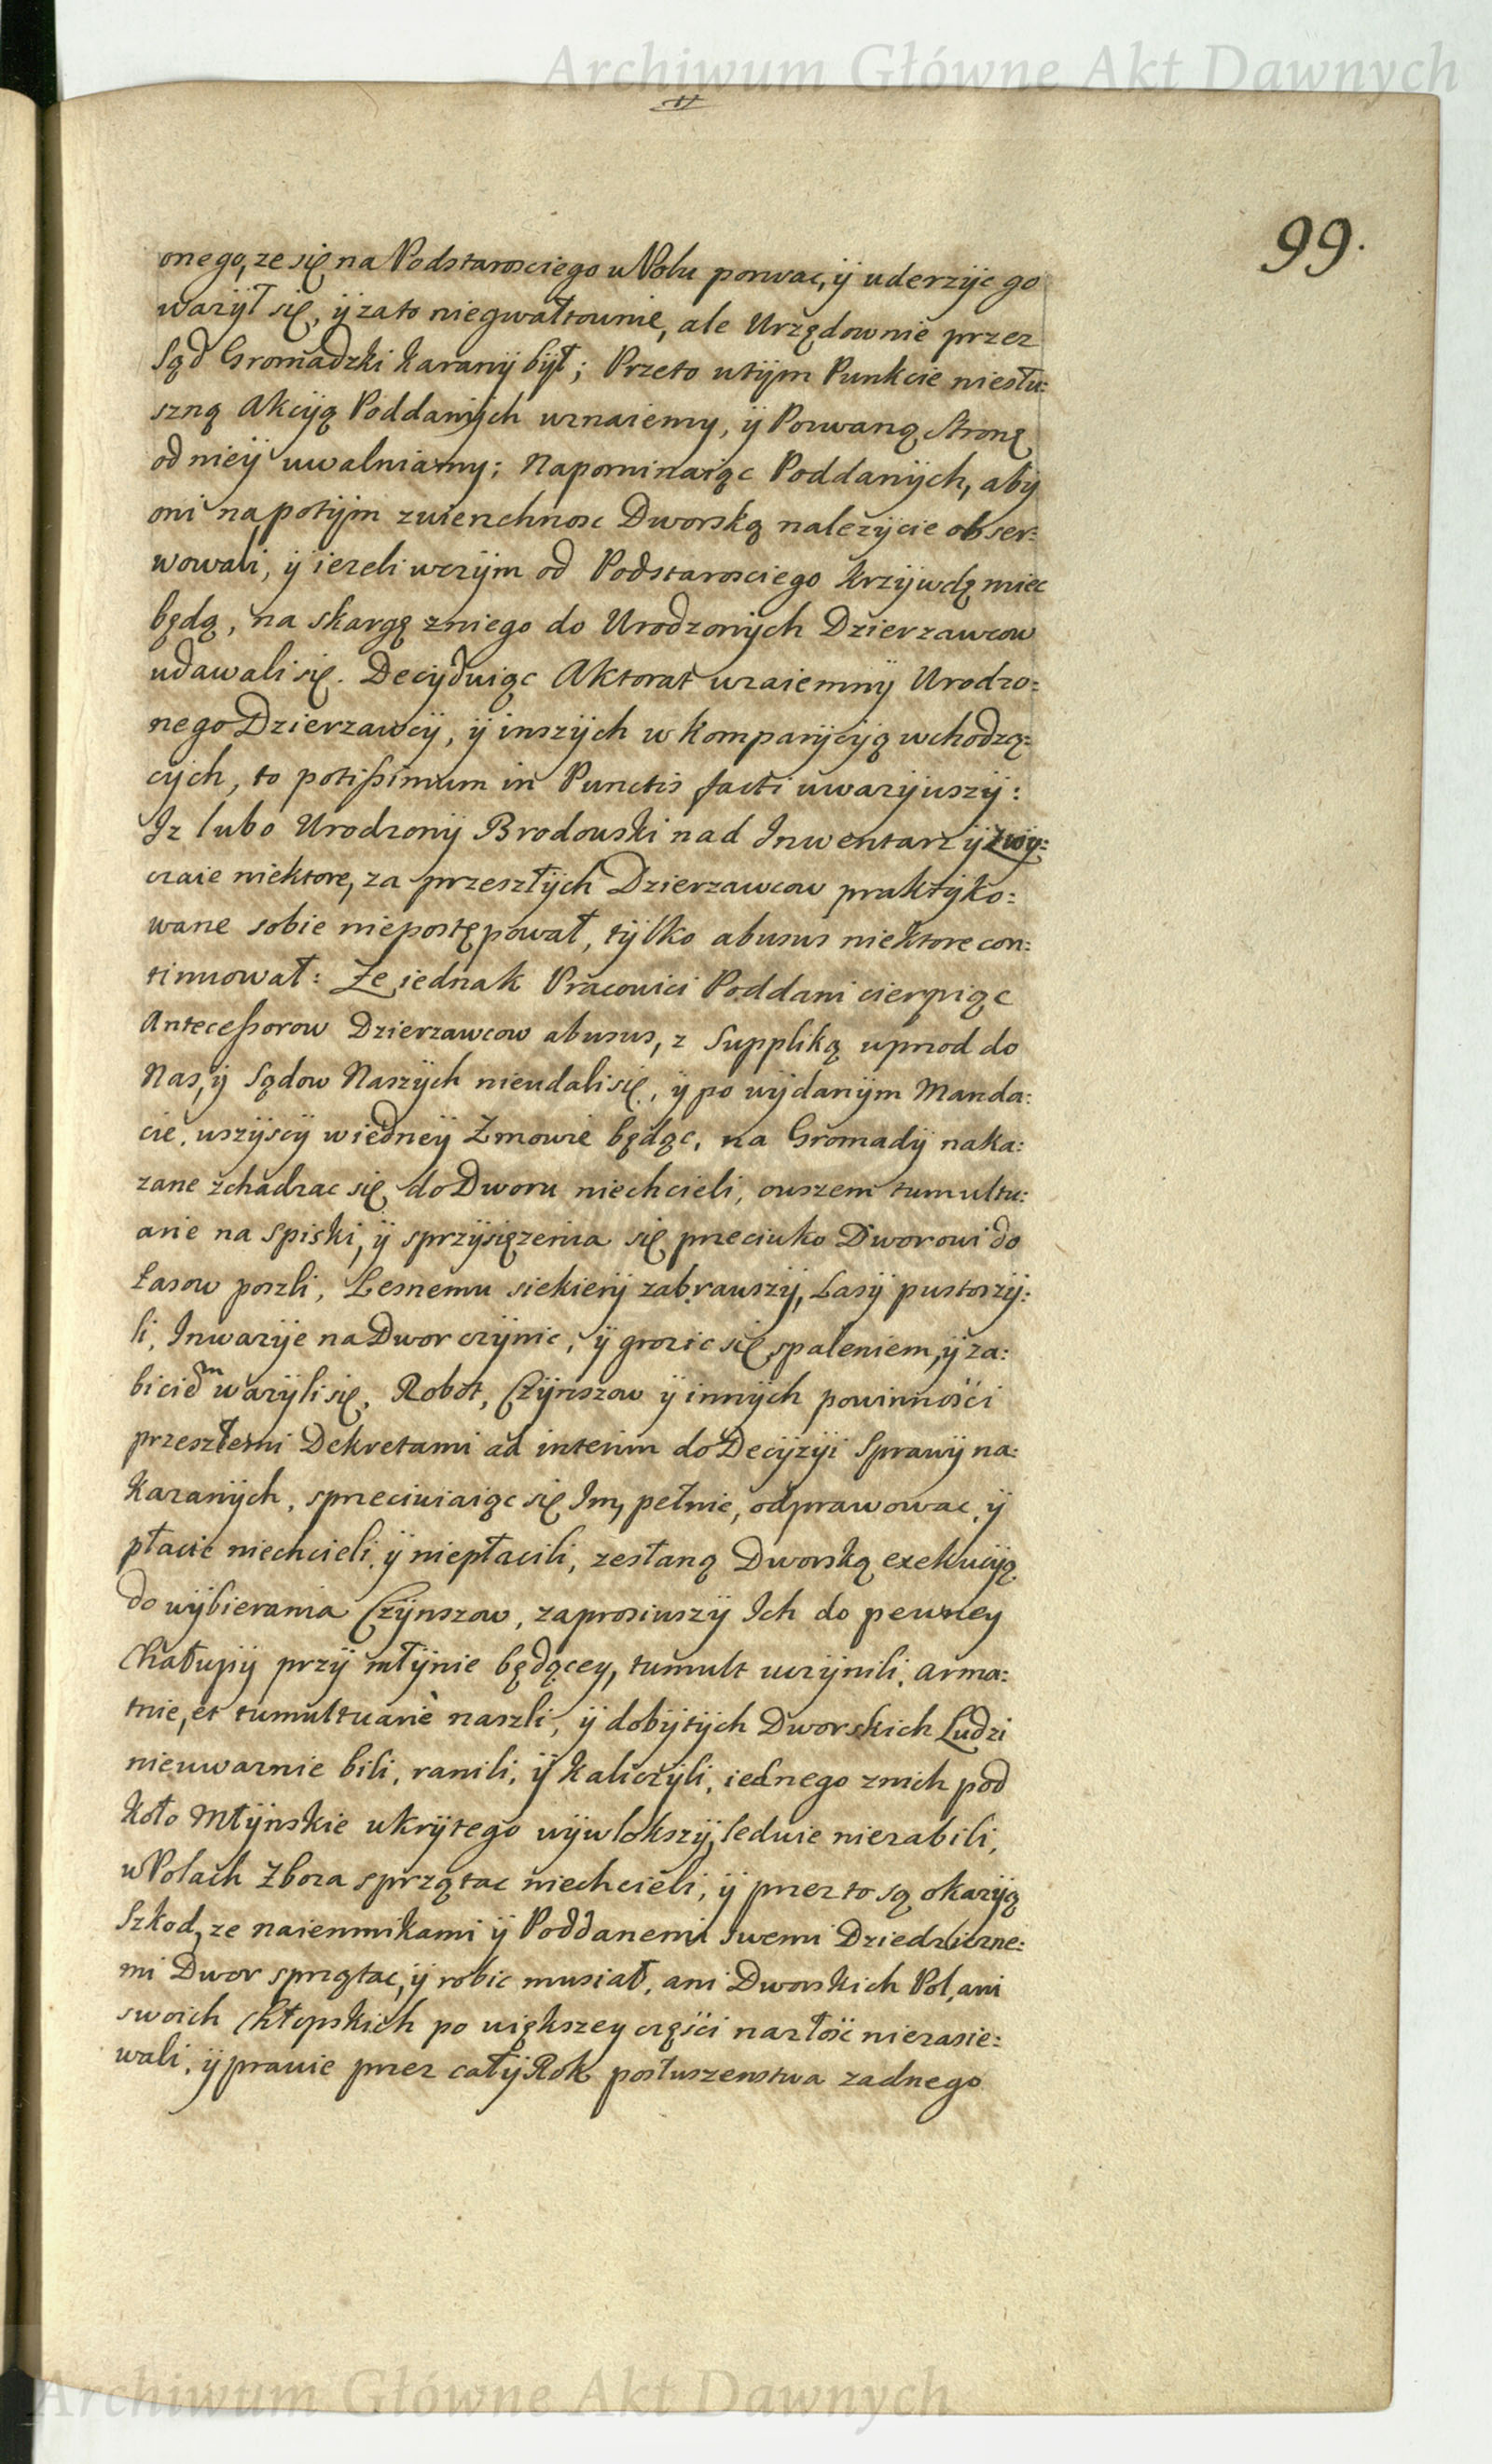 Archiwum Główne Akt Dawnych
99.
onego, ze się na Podstarosciego w Polu porwac, ÿ uderzÿc go
wazÿł się, ÿ za to niegwałtownie, ale Urzędownie przez
Sąd Gromadzki karanÿ bÿł; Przeto w tÿm Punkcie niesłu:
szną Akcÿą Poddanÿch uznaiemy, ÿ Pozwaną Stronę
od nieÿ uwalniamy; Napominaiąc Poddanÿch, abÿ
oni na potÿm zwierzchnosc Dworską nalezÿcie obser:
wowali, ÿ iezeli w czÿm od Podstarosciego krzÿwdę miec
będą, na skargę z niego do Urodzonÿch Dzierzawcow
udawali się. Decÿduiąc Aktorat wzaiemnÿ Urodzo:
nego Dzierzawcÿ, ÿ inszÿch w kompanÿcÿą wchodzą:
cÿch, to potissimum in Punctis facti uwazÿwszÿ:
Iz lubo Urodzonÿ Brodowski nad Inwentarz ÿ zwÿ:
czaie niektore, za przeszłÿch Dzierzawcow praktÿko:
wane sobie niepostępował, tÿlko abusus niektore con:
tinuował: Ze iednak Pracowici Poddani cierpiąc
Antecessorow Dzierzawcow abusus, z Suppliką wprzod do
Nas, ÿ Sądow Naszÿch nieudali się, ÿ po wÿdanÿm Manda:
cie, wszÿscÿ w iedneÿ Zmowie będąc, na Gromadÿ naka:
zane zchadzac się do Dworu niechcieli, owszem tumultu:
arie na spiski, ÿ sprzÿsięzenia się przeciwko Dworowi do
Lasow poszli, Lesnemu siekierÿ zabrawszÿ, Lasÿ pustoszÿ:
li, Inwazÿe na Dwor czÿnic, ÿ grozic się spaleniem, ÿ za:
biciem wazÿli się, Robot, Czÿnszow ÿ innÿch powinności
przeszłemi Dekretami ad interim do Decÿzÿi Sprawÿ na:
kazanÿch, sprzeciwiaiąc się Im, pełnic, odprawowac, ÿ
płacic niechcieli, ÿ niepłacili, zesłaną Dworską exekucÿą
do wÿbierania Czÿnszow, zaprosiwszÿ Ich do pewney
Chałupÿ przÿ młÿnie będącey, tumult uczÿnili, arma:
tnie, et tumultuariè naszli, ÿ dobÿtÿch Dworskich Ludzi
nieuwaznie bili, ranili, ÿ kaliczÿli, iednego z nich pod
koło Młÿnskie ukrÿtego wÿwlokszÿ, ledwie niezabili,
w Polach Zboza sprzątac niechcieli, ÿ przez to są okazÿą
Szkod, ze naiemnikami ÿ Poddanemi swemi Dziedziczne:
mi Dwor sprzątac, ÿ robic musiał, ani Dworskich Pol, ani
swoich Chłopskich po większey części na złość niezasie:
wali, ÿ prawie przez całÿ Rok posłuszenstwa zadnego
Archiwum Główne Akt Dawnych